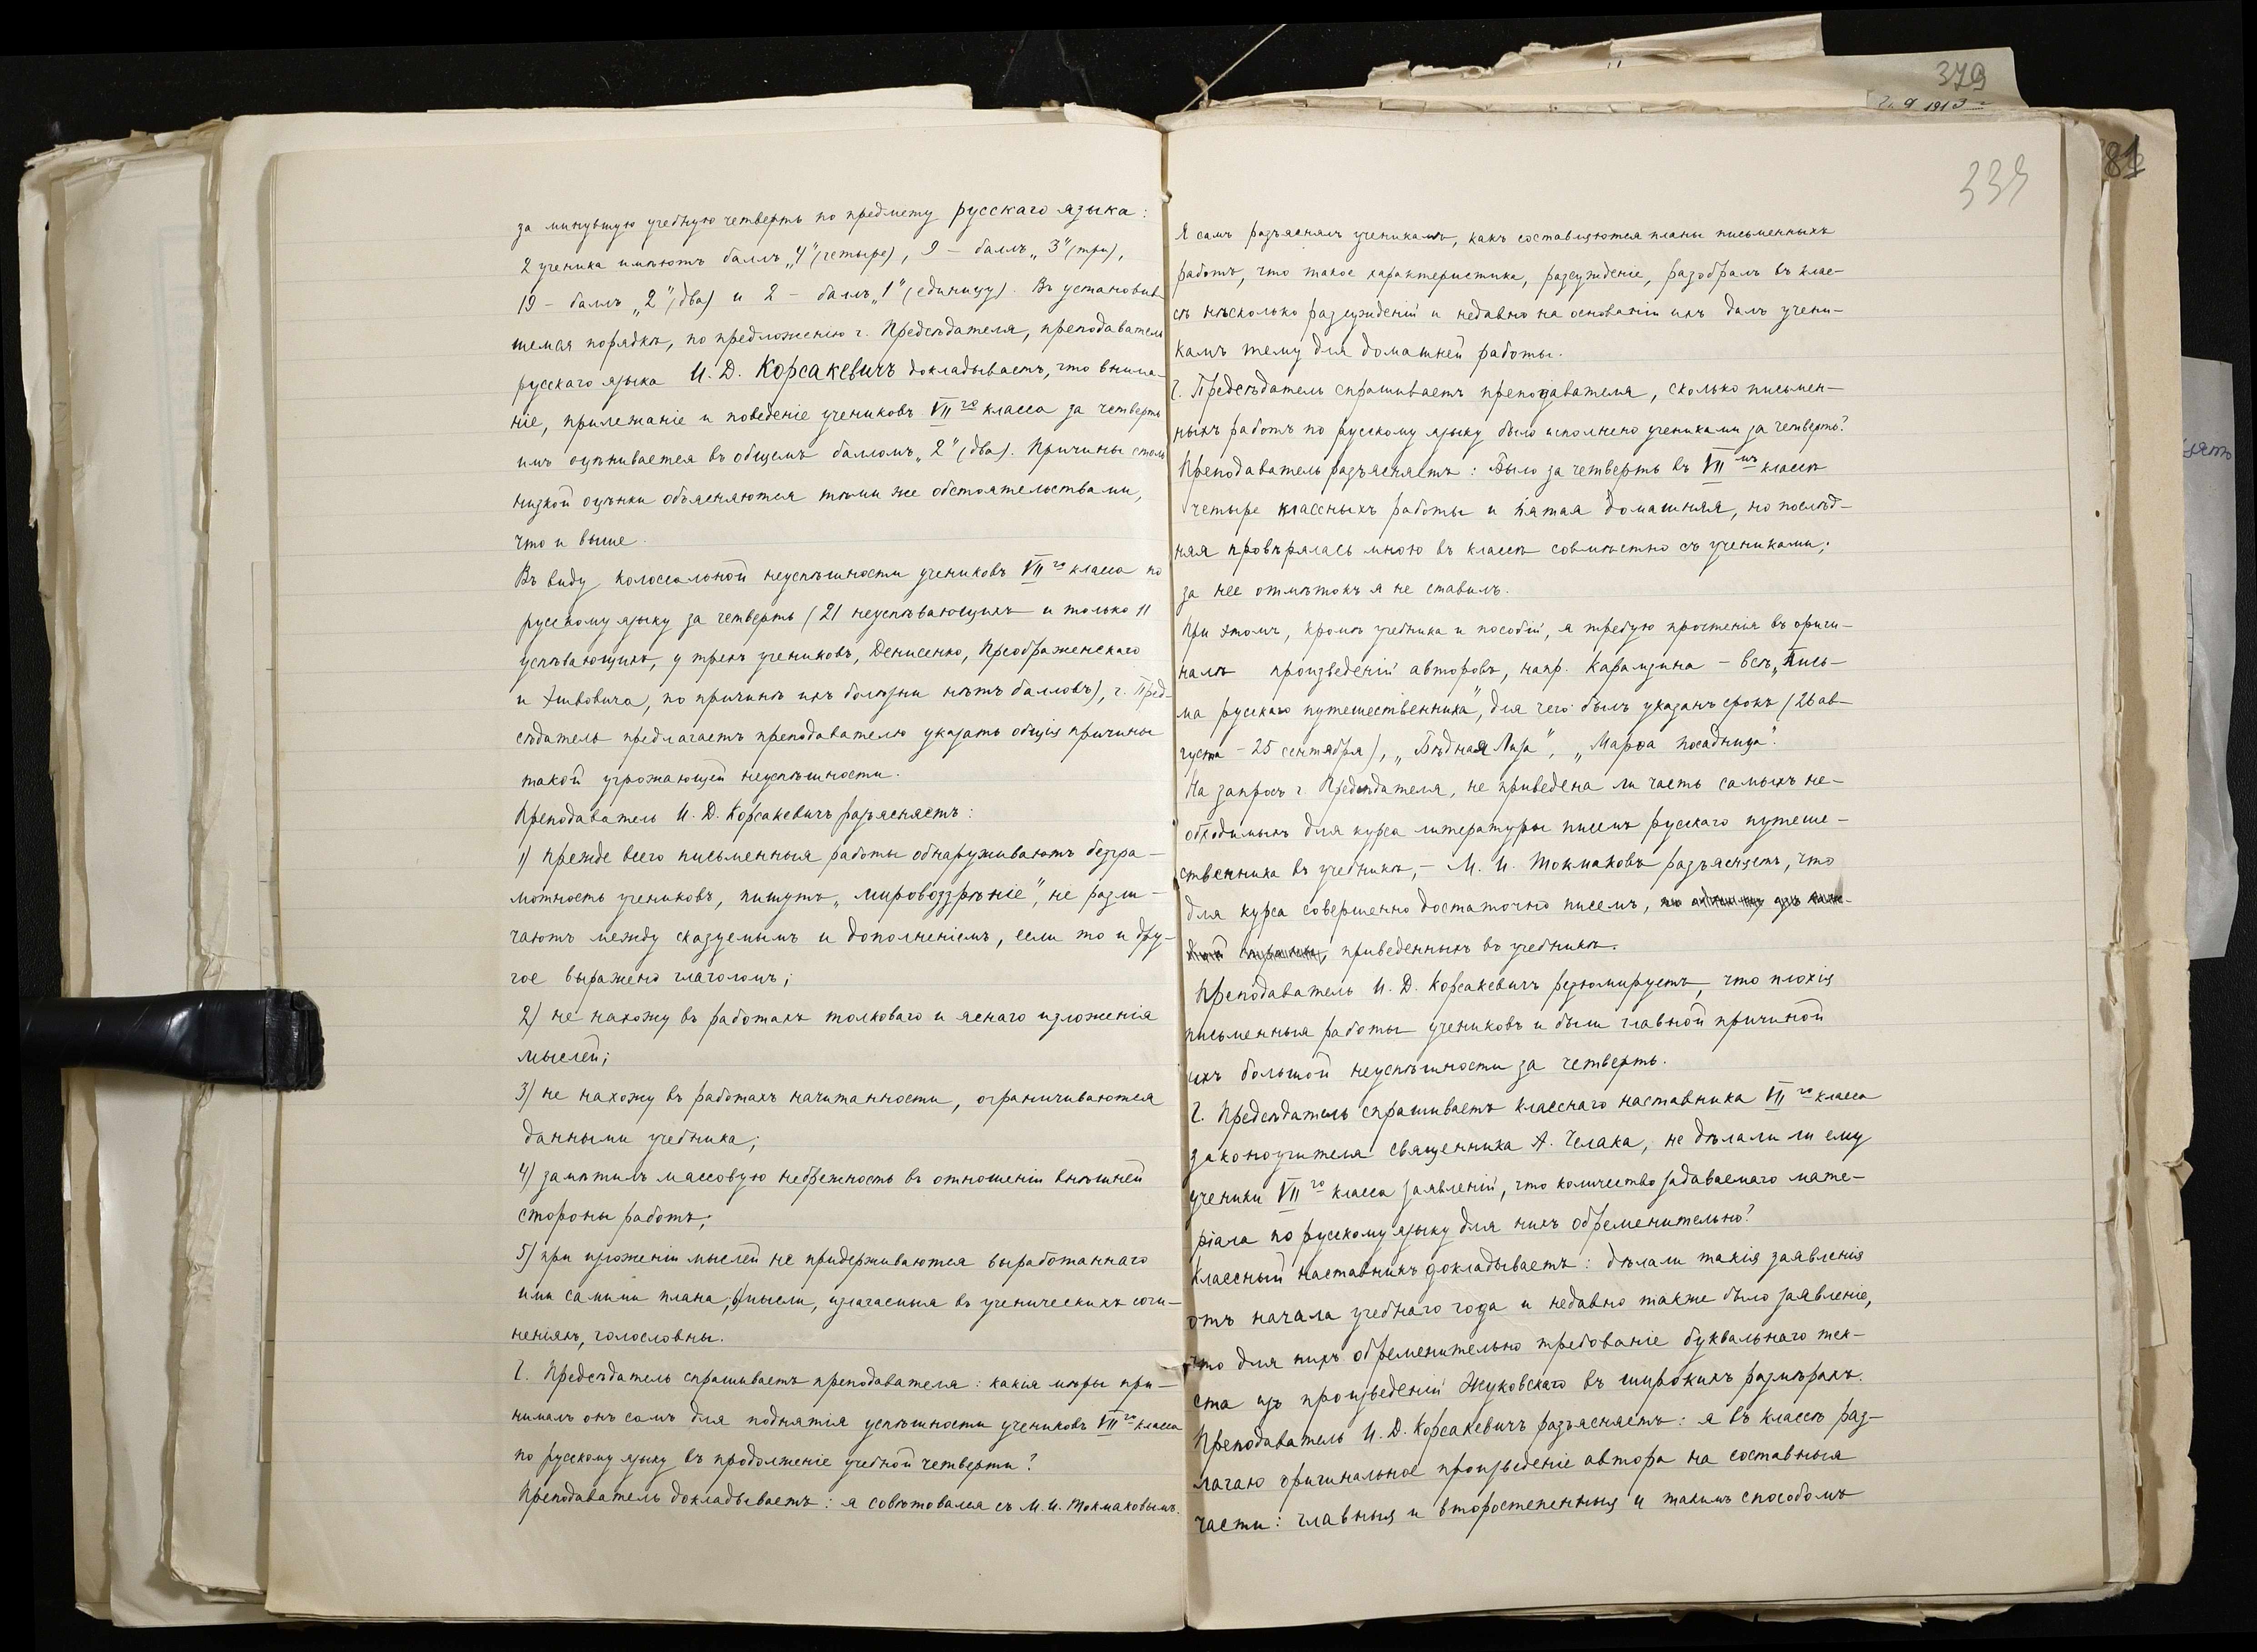 за минувшую учебную четверть по предмету русскаго языка:
2 ученика имѣютъ баллъ „4" (четыре), 9 – баллъ „3" (три),
19 – баллъ „2" (два) и 2 – баллъ „1" (единицу). Въ установив-
шемся порядкѣ, по предложенію г. Предсѣдателя, преподаватель
русскаго языка И. Д. Корсакевичъ докладываетъ, что внима-
ніе, прилежаніе и поведеніе учениковъ VII го класса за четверть
имъ оцѣнивается въ общемъ балломъ „2" (два). Причины столь
низкой оцѣнки объясняются тѣми же обстоятельствами,
что и выше.
Въ виду колоссальной неуспѣшности учениковъ VII го класса по
русскому языку за четверть (21 неуспѣвающихъ и только 11
успѣвающихъ, у трехъ учениковъ, Денисенко, Преображенскаго
и по причинѣ ихъ болѣзни нѣтъ балловъ), г. Пред-
сѣдатель предлагаетъ преподавателю указать общія причины
такой угрожающей неуспѣшности.
Преподаватель И. Д. Корсакевичъ разъясняетъ:
1) прежде всего письменныя работы обнаруживаютъ безгра-
мотность учениковъ, пишутъ „мировоззрѣніе", не разли-
чаютъ между сказуемымъ и дополненіемъ, если то и дру-
гое выражено глаголомъ;
2) не нахожу въ работахъ толковаго и яснаго изложенія
мыслей;
3) не нахожу въ работахъ начитанности, ограничиваются
данными учебника;
4) замѣтилъ массовую небрежность въ отношеніи внѣшней
стороны работъ;
5) при изложеніи мыслей не придерживаются выработаннаго
ими самими плана; 6) мысли, излагаемыя въ ученическихъ сочи-
неніяхъ, голословны.
Г. Предсѣдатель спрашиваетъ преподавателя: какія мѣры при-
нималъ онъ самъ для поднятія успѣшности учениковъ VII го класса
по русскому языку въ продолженіе учебной четверти?
Преподаватель докладываетъ: я совѣтовался съ М. И. Токмаковымъ.
379
339
81
Я самъ разъяснялъ ученикамъ, какъ составляются планы письменныхъ
работъ, что такое характеристика, разсужденіе, разобралъ въ клас-
сѣ нѣсколько разсужденій и недавно на основаніи ихъ далъ учени-
камъ тему для домашней работы.
Г. Предсѣдатель спрашиваетъ преподавателя, сколько письмен-
ныхъ работъ по русскому языку было исполнено учениками за четверть?
Преподаватель разъясняетъ: Было за четверть въ VII мъ классѣ
четыре классныхъ работы и пятая домашняя, но послѣд-
няя провѣрялась мною въ классѣ совмѣстно съ учениками;
за нее отмѣтокъ я не ставилъ.
При этомъ, кромѣ учебника и пособій, я требую прочтенія въ ориги-
налѣ произведеній авторовъ, напр. Карамзина – всѣ „Пись-
ма русскаго путешественника", для чего былъ указанъ срокъ (26 ав-
густа – 25 сентября), „Бѣдная Лиза", „Марѳа посадница".
На запросъ г. Предсѣдателя, не приведена ли часть самыхъ не-
обходимыхъ для курса литературы писемъ русскаго путеше-
ственника въ учебникѣ, – М. И. Токмаковъ разъясняетъ, что
для курса совершенно достаточно писемъ,
приведенныхъ въ учебникѣ.
Преподаватель И. Д. Корсакевичъ резюмируетъ, что плохія
письменныя работы учениковъ и были главной причиной
ихъ большой неуспѣшности за четверть.
Г. Предсѣдатель спрашиваетъ класснаго наставника VII го класса
законоучителя священника А. Челака, не дѣлали ли ему
ученики VII го класса заявленій, что количество задаваемаго мате-
ріала по русскому языку для нихъ обременительно?
Классный наставникъ докладываетъ: дѣлали такія заявленія
отъ начала учебнаго года и недавно также было заявленіе,
что для нихъ обременительно требованіе буквальнаго тек-
ста изъ произведеній Жуковскаго въ широкихъ размѣрахъ.
Преподаватель И. Д. Корсакевичъ разъясняетъ: я въ классѣ раз-
лагаю оригинальное произведеніе автора на составныя
части: главныя и второстепенныя и такимъ способомъ